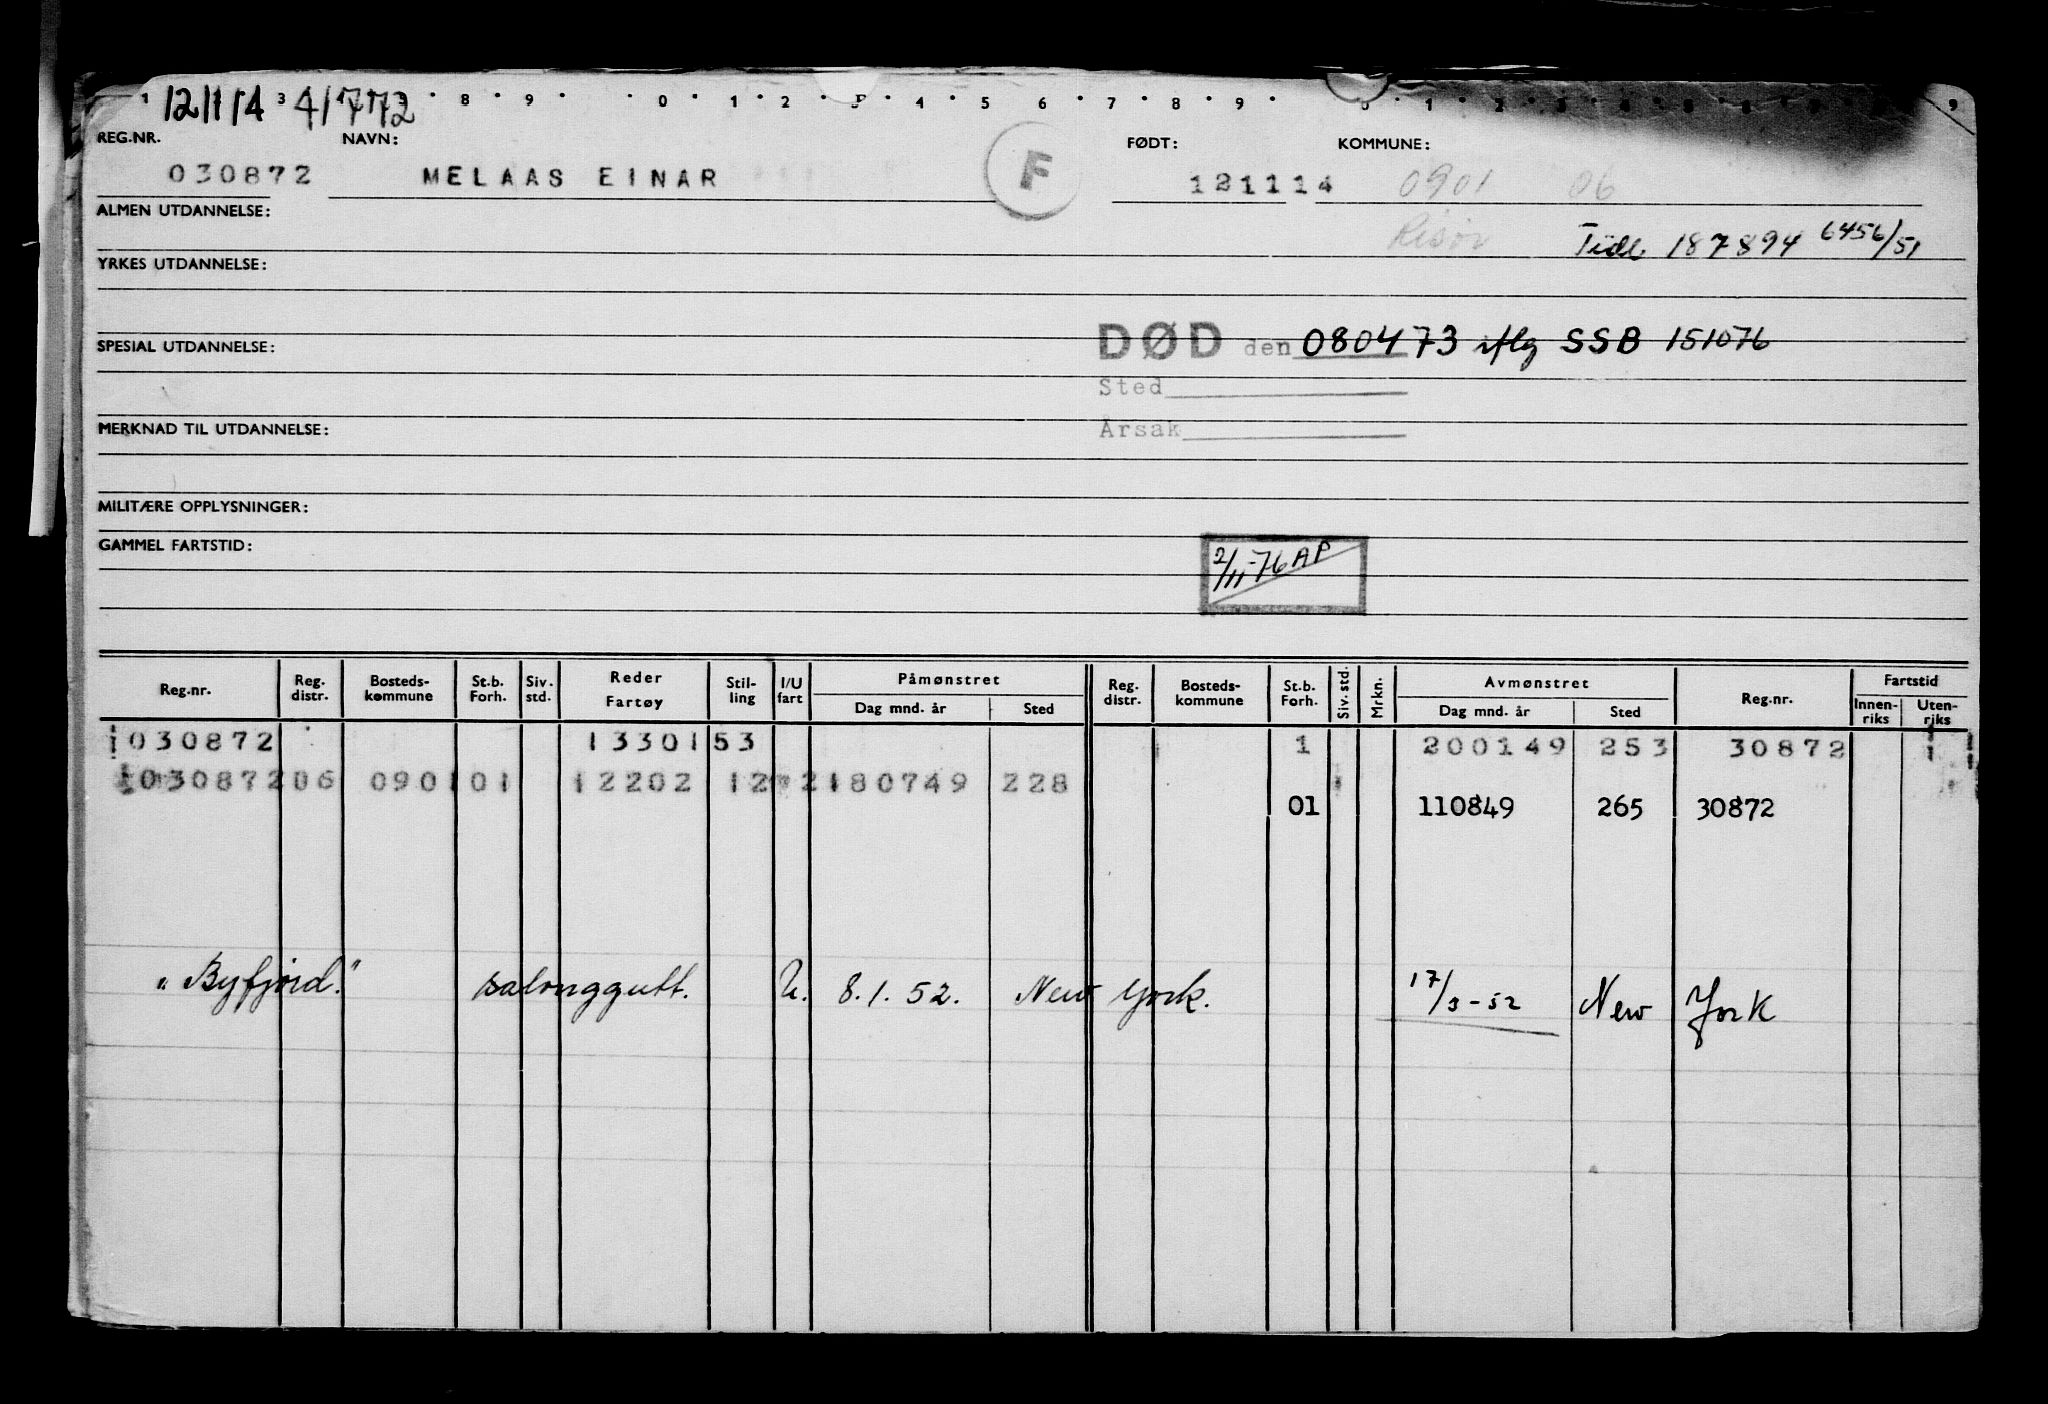 121114 41772
REG.NR. NAVN: FØDT: KOMMUNE:
030872 MELAAS EINAR F 121114 0901 06
ALMEN UTDANNELSE: Risör Tidl 187894 6456/51
YRKES UTDANNELSE:
SPESIAL UTDANNELSE: DØD den 080473 iflg SSB 151076
Sted
MERKNAD TIL UTDANNELSE: Årsak
MILITÆRE OPPLYSNINGER:
GAMMEL FARTSTID: 2/11-76 AP
Reg.nr. Reg. distr. Bosteds-kommune St.b. Forh. Siv. std. Reder Fartøy Stil-ling I/U fart Påmønstret Dag mnd. år Sted Reg. distr. Bosteds-kommune St.b. Forh. Siv. std. Mrkn. Avmønstret Dag mnd. år Sted Reg.nr. Fartstid Innen-riks Uten-riks
030872 13301 53 1 200149 253 30872
030872 06 0901 01 12202 12 2 180749 228
01 110849 265 30872
"Byfjord." salonggutt. U. 8.1.52. New York. 17/3-52 New York